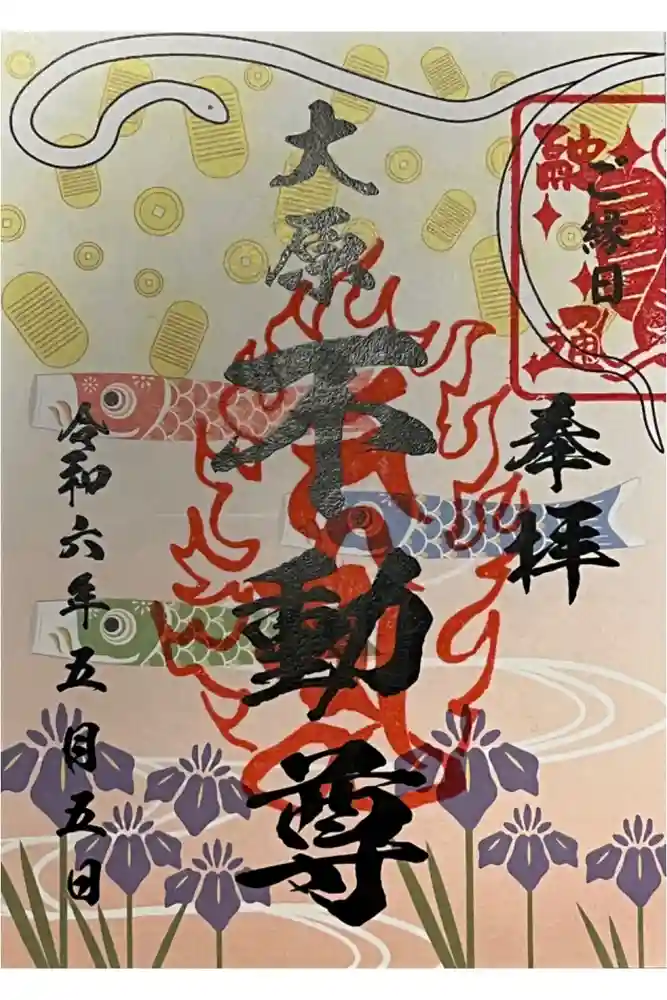 融通
ご縁日
奉拝
大原不動尊
令和六年五月五日